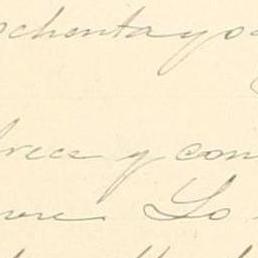 ochenta y o
rece y con
ore. Lo